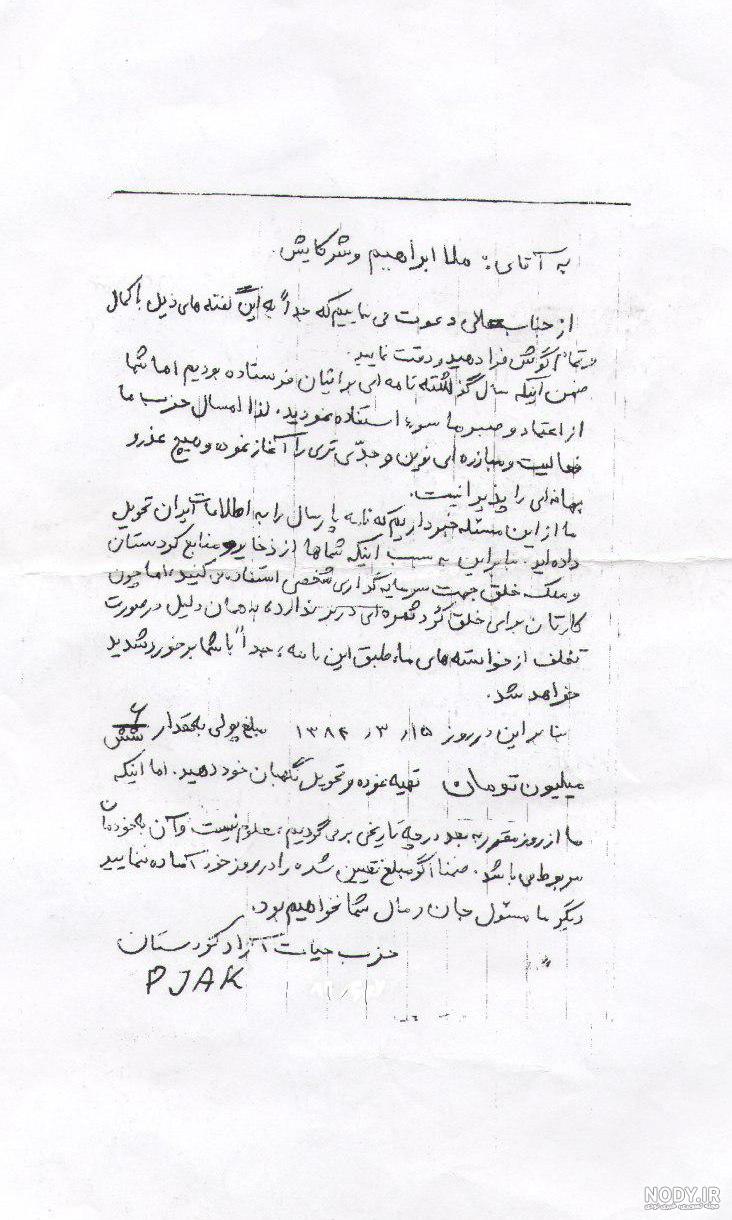 به آقای: ملا ابراهیم و شرکایش.
از جناب عالی دعوت می نماییم که جداً به این گفته های ذیل با کمال
و تمام گوش فرا دهید و دقت نمایید.
ضمن اینکه سال گذشته نامه ای برایتان فرستاده بودیم اما شما
از اعتماد و صبر ما سوء استفاده نمودید. لذا امسال حزب ما
فعالیت و مبارزه ای نوین و جدّی تری را آغاز نموده و هیچ عذر و
بهانه ای را پذیرا نیست.
ما از این مسئله خبرداریم که نامه پارسال را به اطلاعات ایران تحویل
داده اید. بنابراین به سبب اینکه شماها از ذخایر و منابع کردستان
و ملک خلق جهت سرمایه گذاری شخصی استفاده می کنید، اما چون
کارتان برای خلق کُرد ثمره ای در بر ندارد، به همان دلیل در صورت
تخلف از خواسته های ما، طبق این نامه، جداً با شما برخورد شدید
خواهد شد.
بنابراین در روز ۱۵, ۳, ۱۳۸۴ مبلغ پولی به مقدار ۶ شش
میلیون تومان تهیه نموده و تحویل نگهبان خود دهید. اما اینکه
ما از روز مقرر به بعد در چه تاریخی برمی گردیم، معلوم نیست و آن به خودمان
مربوط می باشد. ضمنا اگر مبلغ تعیین شده را در روز خود آماده ننمایید
دیگر ما مسئول جان و مال شما نخواهیم بود.
حزب حیات آزاد کردستان
PJAK
NODY.IR